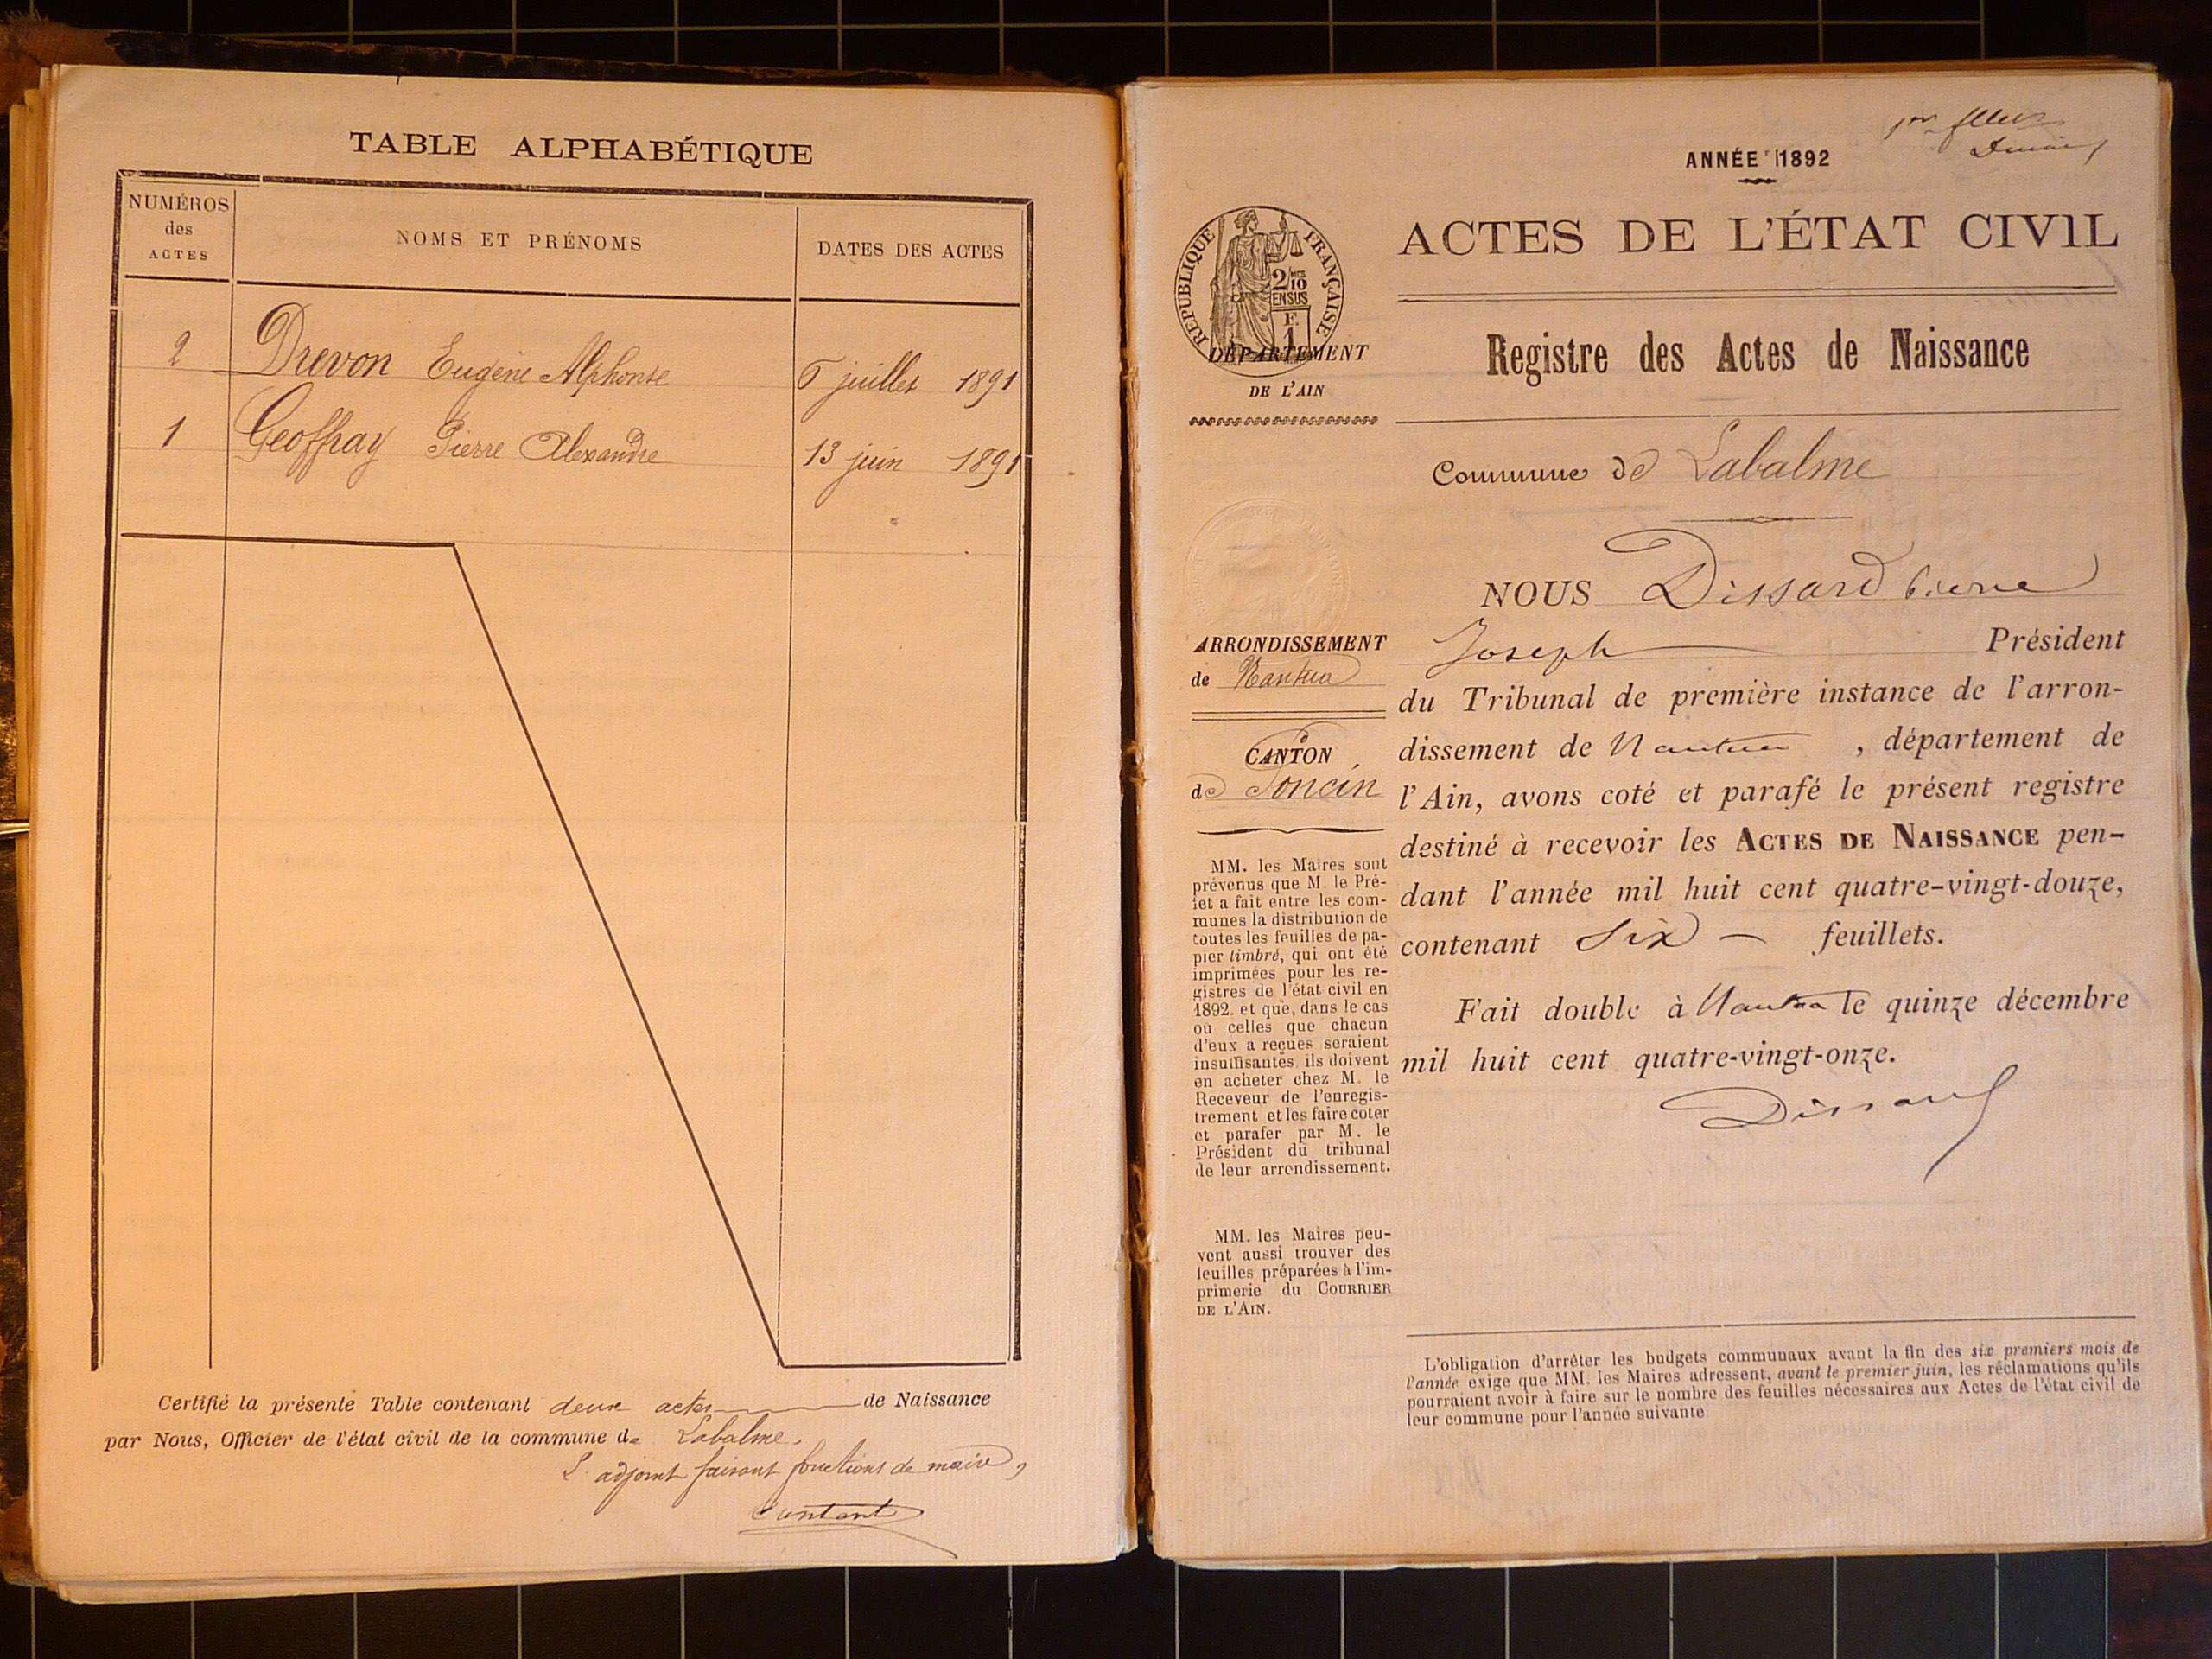 TABLE ALPHABÉTIQUE
NUMÉROS
des
ACTES
NOMS ET PRÉNOMS
DATES DES ACTES
2 Drevon Eugène Alphonse 6 juillet 1891
1 Geoffray Pierre Alexandre 13 juin 1891
Certifié la présente Table contenant deux actes de Naissance
par Nous, Officier de l'état civil de la commune de Labalme.
L'adjoint faisant fonctions de maire,
ANNÉE 1892
ACTES DE L'ÉTAT CIVIL
RÉPUBLIQUE FRANÇAISE
2/10
EN SUS
F.
1
DÉPARTEMENT
DE L'AIN
Registre des Actes de Naissance
Commune de Labalme
NOUS Dissard Pierre
Joseph Président
du Tribunal de première instance de l'arron-
dissement de Nantua, département de
l'Ain, avons coté et parafé le présent registre
destiné à recevoir les ACTES DE NAISSANCE pen-
dant l'année mil huit cent quatre-vingt-douze,
contenant Six — feuillets.
Fait double à Nantua le quinze décembre
mil huit cent quatre-vingt-onze.
Dissard
ARRONDISSEMENT
de Nantua
CANTON
de Poncin
MM. les Maires sont
prévenus que M. le Pré-
fet a fait entre les com-
munes la distribution de
toutes les feuilles de pa-
pier timbré, qui ont été
imprimées pour les re-
gistres de l'état civil en
1892. et que, dans le cas
où celles que chacun
d'eux a reçues seraient
insuffisantes, ils doivent
en acheter chez M. le
Receveur de l'enregis-
trement et les faire coter
et parafer par M. le
Président du tribunal
de leur arrondissement.
MM. les Maires peu-
vent aussi trouver des
feuilles préparées à l'im-
primerie du COURRIER
DE L'AIN.
L'obligation d'arrêter les budgets communaux avant la fin des six premiers mois de
l'année exige que MM. les Maires adressent, avant le premier juin, les réclamations qu'ils
pourraient avoir à faire sur le nombre des feuilles nécessaires aux Actes de l'état civil de
leur commune pour l'année suivante.